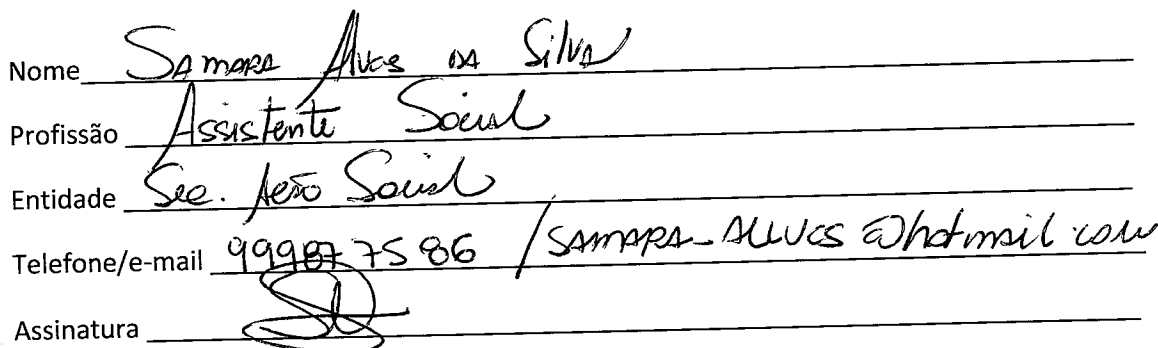 Nome Samara Alves da Silva
Profissão Assistente Social
Entidade Sec. Ação Social
Telefone/e-mail 999877586 / SAMARA_ALLVES@hotmail.com
Assinatura